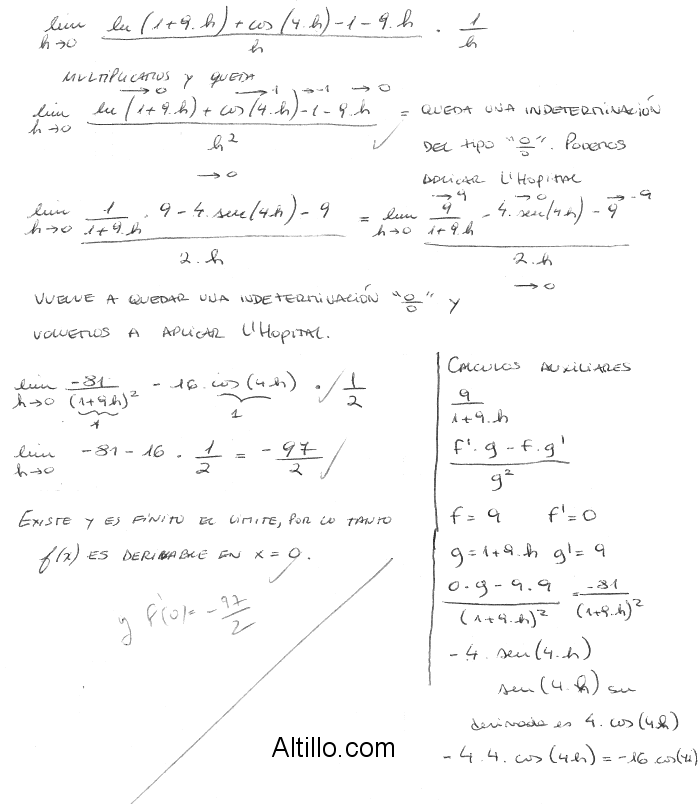 lim h→0 (ln(1+9.h)+cos(4.h)-1-9.h)/h · 1/h
MULTIPLICAMOS Y QUEDA
→0 →1 →-1 →0
lim h→0 (ln(1+9.h)+cos(4.h)-1-9.h)/h² = QUEDA UNA INDETERMINACIÓN
→0
DEL TIPO "0/0". PODEMOS
APLICAR L'HOPITAL
→9 →0 →-9
lim h→0 (1/(1+9.h) . 9-4.sen(4h)-9)/(2.h) = lim h→0 (9/(1+9.h) - 4.sen(4h)-9)/(2.h)
→0
VUELVE A QUEDAR UNA INDETERMINACIÓN "0/0" Y
VOLVEMOS A APLICAR L'HOPITAL.
lim h→0 -81/(1+9h)² - 16.cos(4h) . 1/2
1 1
lim h→0 -81-16 . 1/2 = -97/2
EXISTE Y ES FINITO EL LIMITE, POR LO TANTO
f(x) ES DERIVABLE EN X=0.
y f'(0)=-97/2
CALCULOS AUXILIARES
9/(1+9.h)
(f'.g-f.g')/g²
f=9 f'=0
g=1+9.h g'=9
(0.g-9.9)/(1+9.h)² = -81/(1+9.h)²
-4.sen(4.h)
sen(4.h) su
derivada es 4.cos(4h)
-4.4.cos(4h)=-16 cos(4h)
Altillo.com